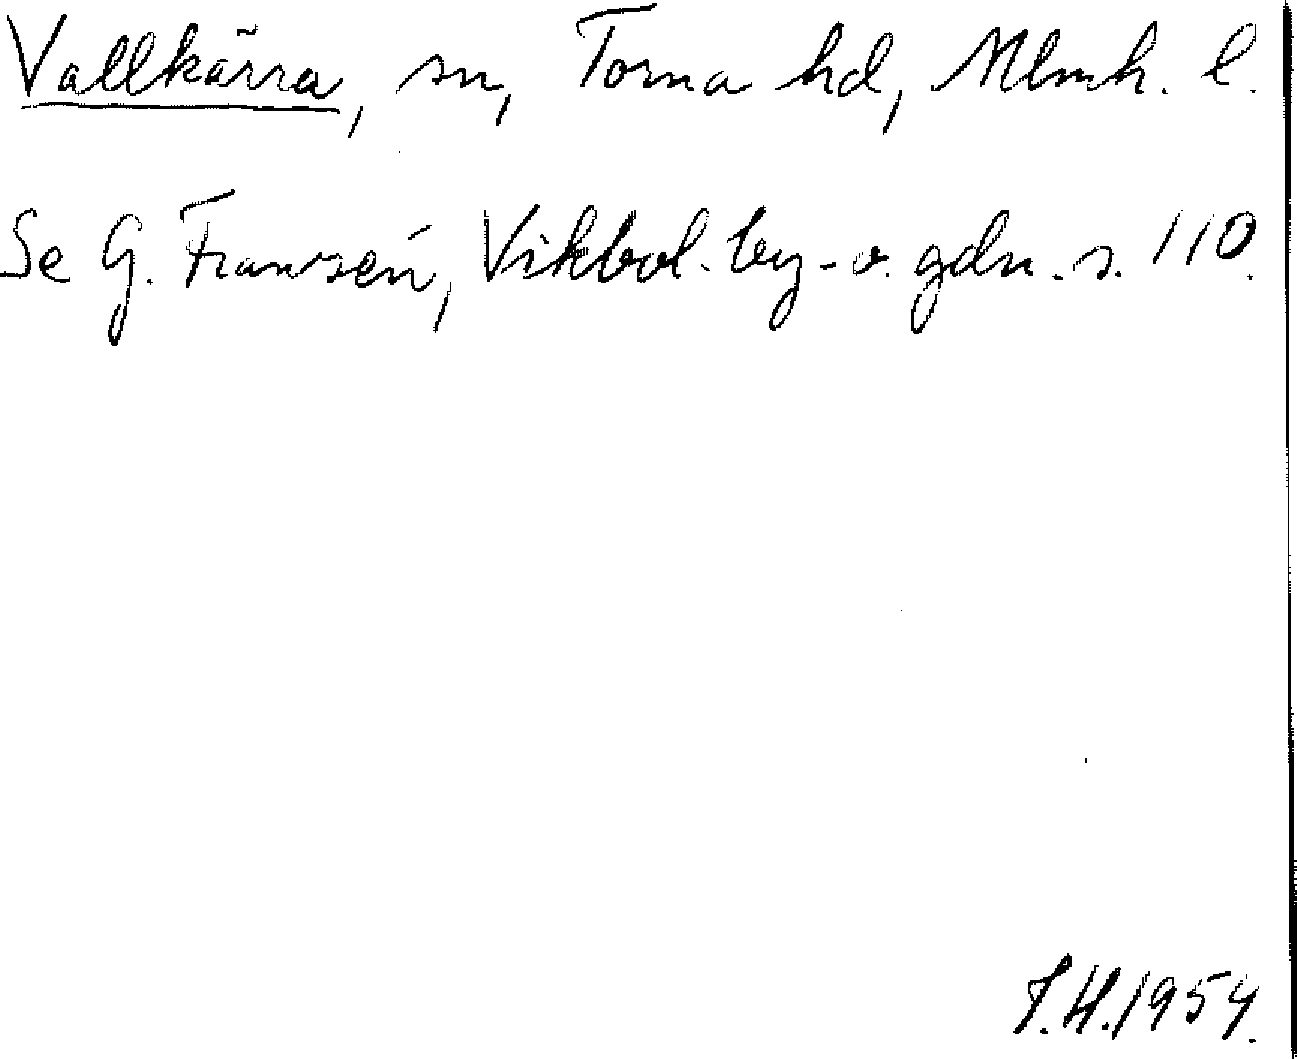 Vallkärra, sn, Torna hd, Mlmh. l.
Se G. Franzén, Vikbol. by- o. gdn. s. 110.
J.H.1954.